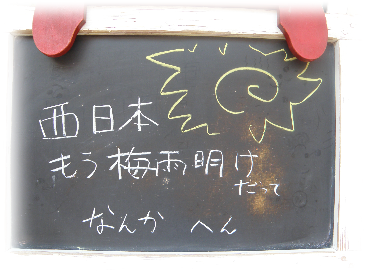 西日本
もう梅雨明け
だって
なんか へん